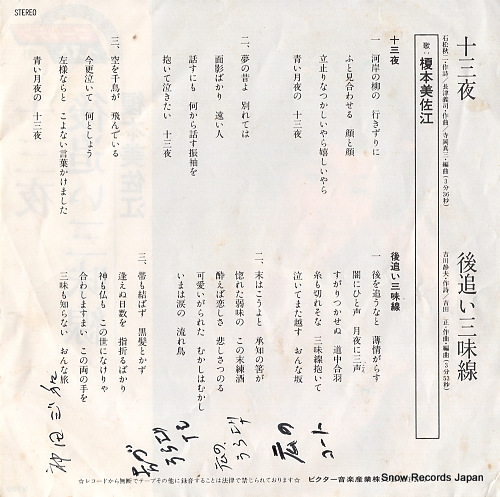 STEREO
十三夜
石松秋二・作詩／長津義司・作曲／寺岡真三・編曲(3分36秒)
後追い三味線
吉川静夫・作詩／吉田 正・作曲・編曲(3分53秒)
歌:榎本美佐江
十三夜
一、河岸の柳の 行きずりに
ふと見合わせる 顔と顔
立止りなつかしいやら嬉しいやら
青い月夜の 十三夜
二、夢の昔よ 別れては
面影ばかり 遠い人
話すにも 何から話す振袖を
抱いて泣きたい 十三夜
三、空を千鳥が 飛んでいる
今更泣いて 何としよう
左様ならと こよない言葉かけました
青い月夜の 十三夜
後追い三味線
一、後を追うなと 薄情がらす
闇にひと声 月夜に三声
すがりつかせぬ 道中合羽
糸も切れそな 三味線抱いて
泣いてまた越す おんな坂
二、末はこうよと 承知の筈が
惚れた弱味の この未練酒
酔えば悲しさ 悲しさつのる
可愛いがられた むかしはむかし
いまは涙の 流れ鳥
三、帯も結ばず 黒髪とかず
逢えぬ日数を 指折るばかり
神も仏も この世になけりゃ
合わしますまい この両の手を
三味も知らない おんな旅
☆レコードから無断でテープその他に録音することは法律で禁じられております☆
ビクター音楽産業株
Snow Records Japan